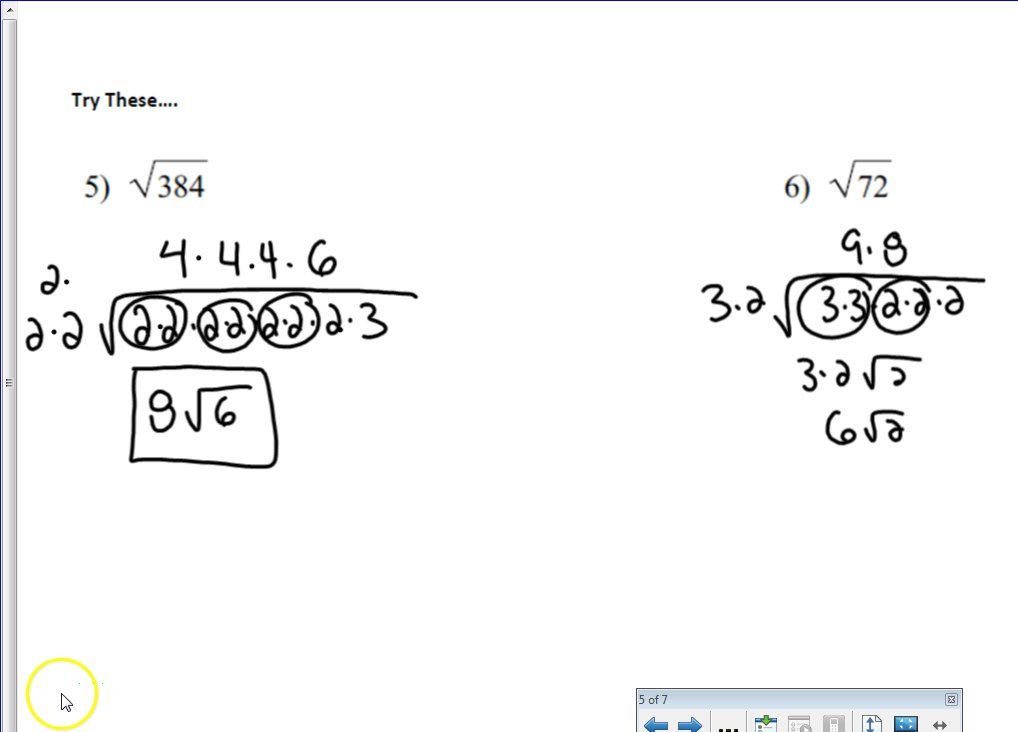 Try These....
5) √384
4·4·4·6
2·
2·2√2·2·2·2·2·2·2·3
8√6
6) √72
9·8
3·2√3·3·2·2·2
3·2√2
6√2
5 of 7